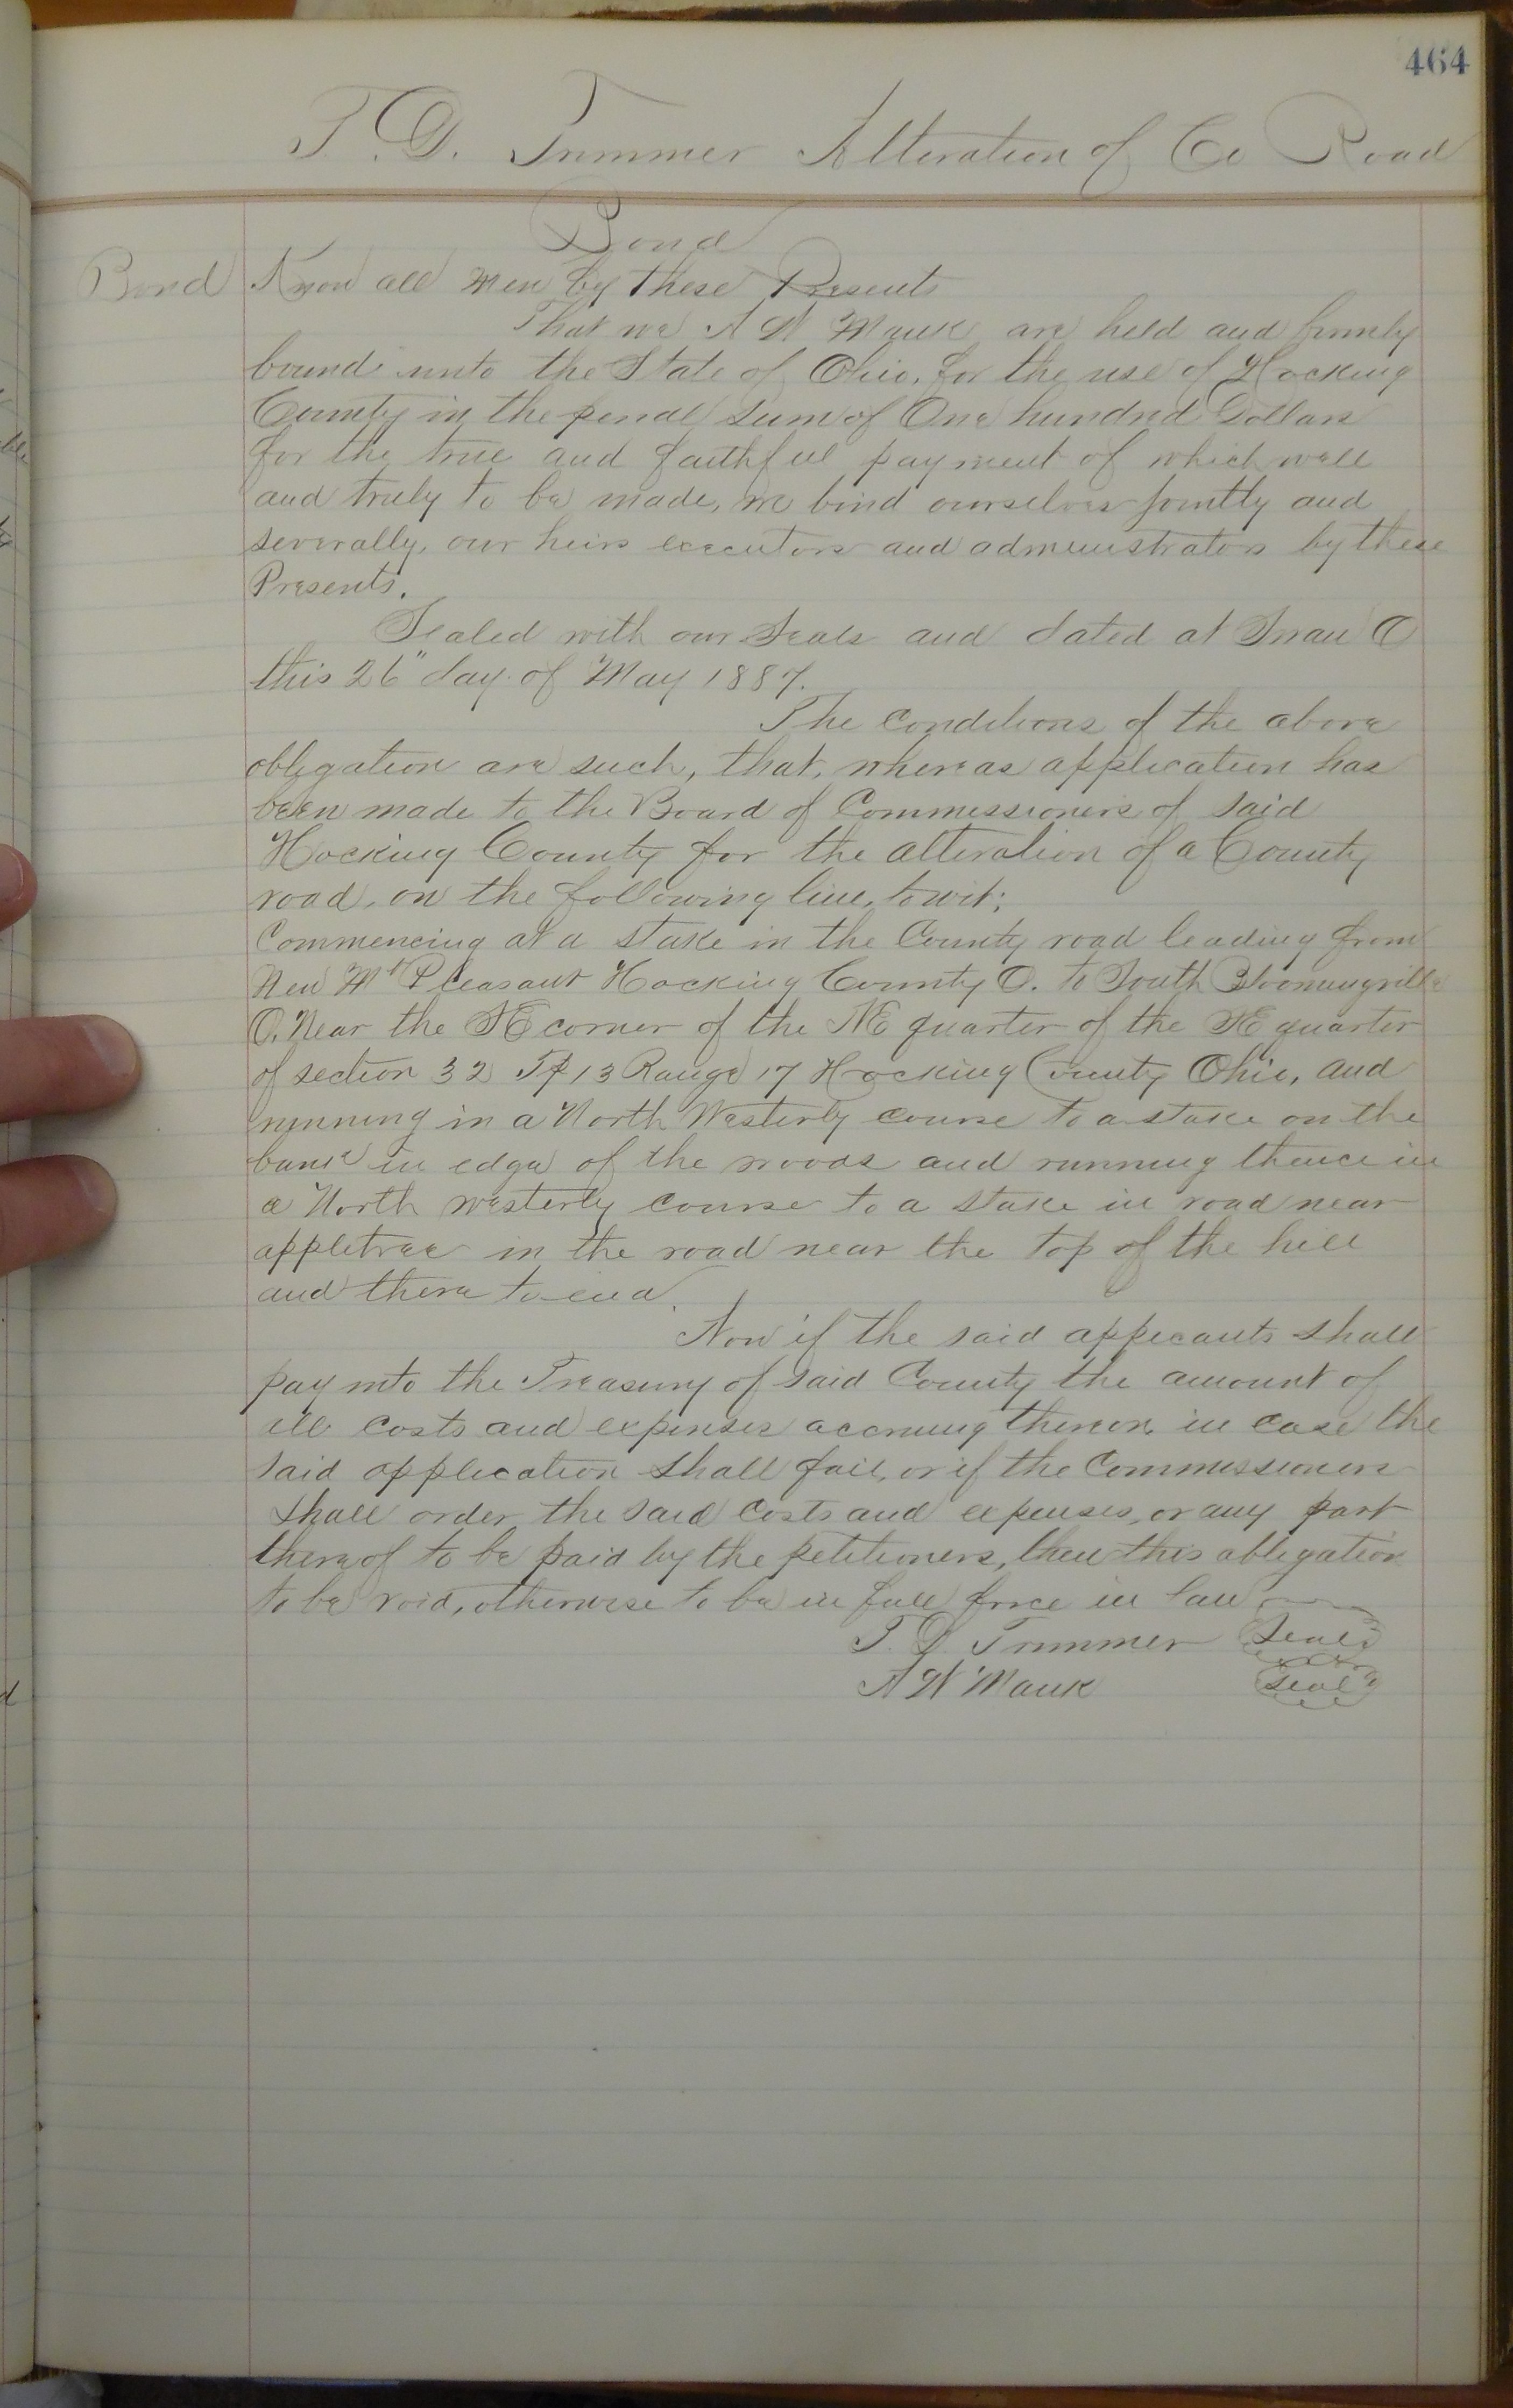 464
T. D. Trimmer Alteration of Co Road
Bond
Bond Know all men by these Presents
That we A W Mauk are held and firmly
bound unto the State of Ohio, for the use of Hocking
County in the penal sum of One hundred Dollars
for the true and faithful payment of which well
and truly to be made, we bind ourselves jointly and
severally, our heirs executors and administrators by these
Presents.
Sealed with our Seals and dated at O
this 26" day of May 1887.
The conditions of the above
obligation are such, that, whereas application has
been made to the Board of Commissioners of said
Hocking County for the alteration of a County
road, on the following line, to wit;
Commencing at a stake in the County road leading from
New Mt Pleasant Hocking County O. to South Bloomingville
O. Near the SE corner of the NE quarter of the SE quarter
of section 32 Tp 13 Range 17 Hocking County Ohio, and
running in a North Westerly course to a stake on the
bank in edge of the woods and running thence in
a North westerly course to a stake in road near
appletree in the road near the top of the hill
and there to end.
Now if the said applicants shall
pay into the Treasury of said County the amount of
all costs and expenses accruing thereon in case the
said application shall fail, or if the Commissioners
shall order the said costs and expenses, or any part
thereof to be paid by the petitioners, then this obligation
to be void, otherwise to be in full force in law
T. D. Trimmer Seal
A W Mauk Seal